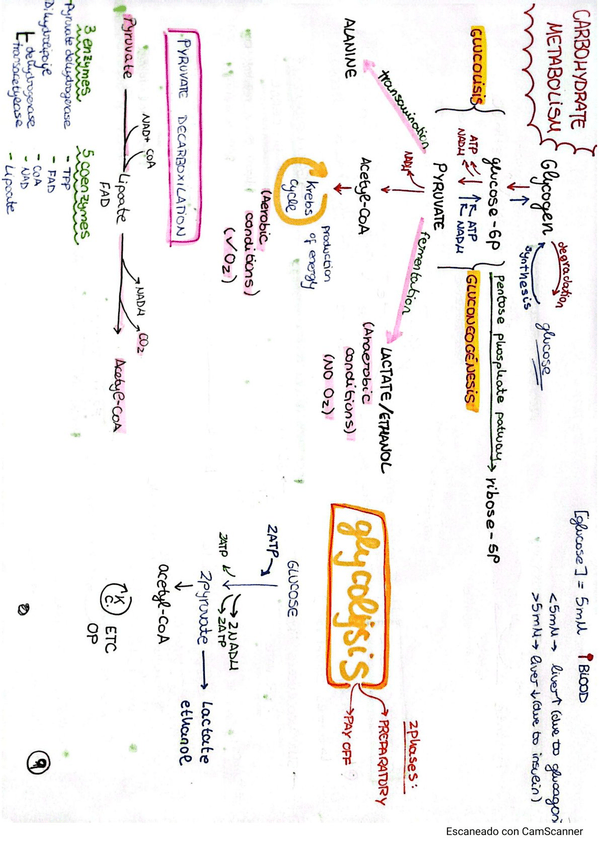 CARBOHYDRATE
METABOLISM
Glycogen
degradation
synthesis
glucose
GLUCOLISIS
glucose-6p
pentose phosphate patway
ribose-5p
ATP
NADH
ATP
NADH
GLUCONEOGÉNESIS
PYRUVATE
transamination
ALANINE
fermentation
LACTATE/ETHANOL
(Anaerobic
conditions)
(NO O2)
NADH
Acetyl-CoA
Krebs
cycle
production
of energy
(Aerobic
conditions)
(√O2)
PYRUVATE DECARBOXILATION
Pyruvate
NAD+
CoA
Lipoate
FAD
NADH
CO2
Acetyl-CoA
3 enzymes
Pyruvate dehydrogenase
Dihydrolipoyle
dehydrogenase
transacetylase
5 coenzymes
- TPP
- FAD
- CoA
- NAD
- Lipoate
[glucose] = 5mM
BLOOD
<5mM → liver↑ (due to glucagon)
>5mM → liver↓ (due to insulin)
glycolysis
2phases:
PREPARATORY
PAY OFF
GLUCOSE
2ATP
2ATP
2NADH
2ATP
2pyruvate
Lactate
ethanol
acetyl-CoA
K
C.
ETC
OP
9
Escaneado con CamScanner